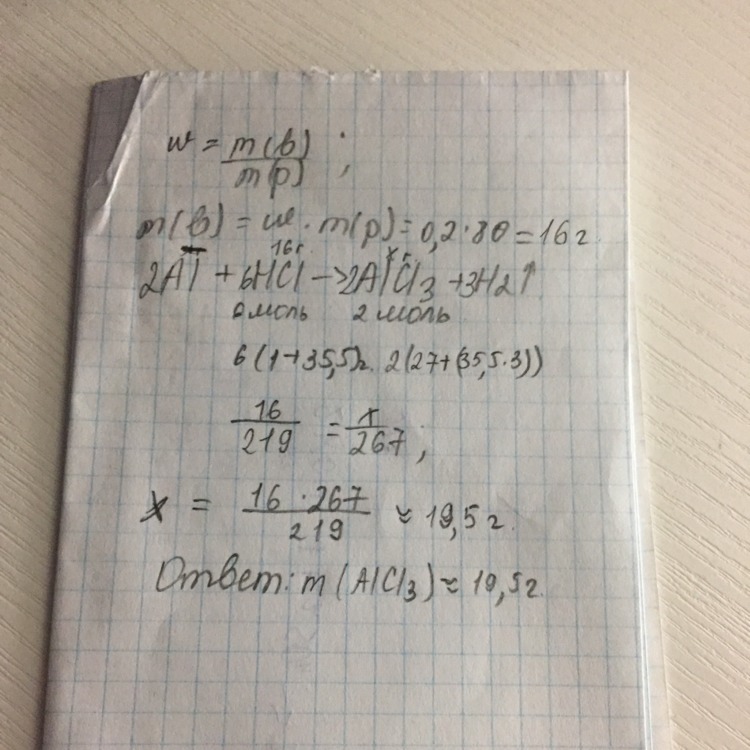 w = m(в)/m(р) ;
m(в) = w · m(р) = 0,2·80 = 16 г
16 г. x г
2Al + 6HCl → 2AlCl3 + 3H2↑
6 моль 2 моль
6(1+35,5)г. 2(27+(35,5·3))
16/219 = x/267 ;
x = 16·267/219 ≈ 19,5 г.
Ответ: m(AlCl3) ≈ 19,5 г.